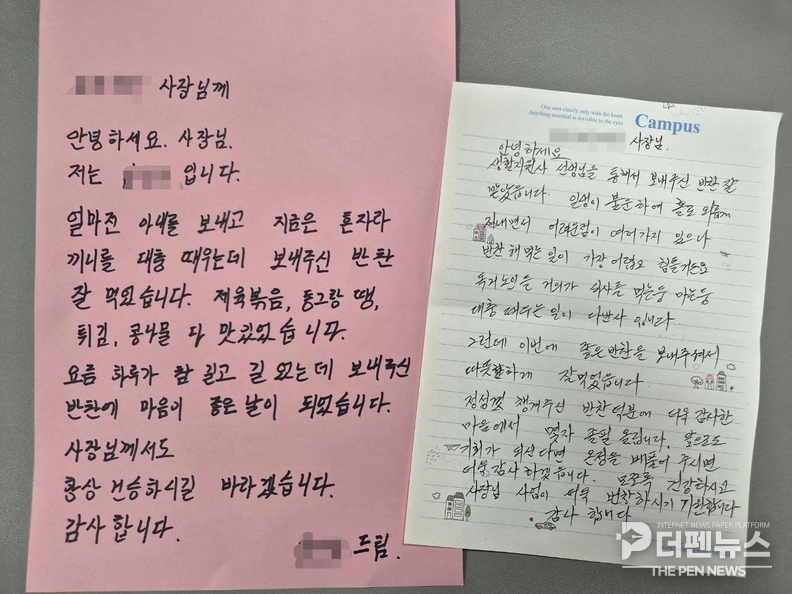 사장님께
안녕하세요. 사장님.
저는 입니다.
얼마전 아내를 보내고 지금은 혼자라
끼니를 대충 때우는데 보내주신 반찬
잘 먹었습니다. 제육볶음, 동그랑 땡,
튀김, 콩나물 다 맛있었습니다.
요즘 하루가 참 길고 길었는데 보내주신
반찬에 마음이 좋은 날이 되었습니다.
사장님께서도
항상 건승하시길 바라겠습니다.
감사합니다.
드림.
One sees clearly only with the heart
Anything essential is invisible to the eyes
Campus
사장님.
안녕하세요
생활지원사 선생님을 통해서 보내주신 반찬 잘
받았습니다. 인생이 불운하여 홀로 외롭게
지내면서 어려운점이 여러가지 있으나
반찬 해먹는 일이 가장 어렵고 힘들거든요
독거노인들 거의가 식사를 먹는둥 마는둥
대충 때우는 일이 다반사 입니다
그런데 이번에 좋은반찬을 보내주셔서
따뜻할하게 잘먹었읍니다
정성껏 챙겨주신 반찬덕분에 더욱 감사한
마음에서 몇자 졸필 올립니다. 앞으로도
기회가 되신다면 온정을 베풀어 주시면
더욱 감사 하겠습니다. 모쪼록 건강하시고
사장님 사업이 더욱 번창하시기 기원합니다
감사 합니다
INTERNET NEWS PAPER PLATFORM
더펜뉴스
THE PEN NEWS